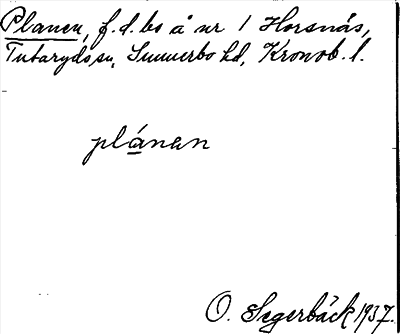 Planen, f.d. bo å nr 1 Horsnäs,
Tutaryds sn, Sunnerbo hd, Kronob. l.
plánan
O. Segerbäck 1937.